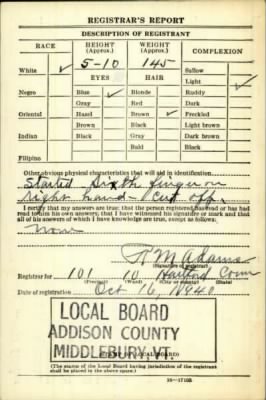 REGISTRAR'S REPORT
DESCRIPTION OF REGISTRANT
RACE HEIGHT (Approx.) WEIGHT (Approx.) COMPLEXION
5-10 145
White ✓ Sallow
EYES HAIR Light ✓
Negro Blue ✓ Blonde Ruddy
Gray Red Dark
Oriental Hazel Brown ✓ Freckled
Brown Black Light brown
Indian Black Gray Dark brown
Bald Black
Filipino
Other obvious physical characteristics that will aid in identification
Started sixth finger on
right hand - cut off.
I certify that my answers are true; that the person registered has read or has had
read to him his own answers; that I have witnessed his signature or mark and that
all of his answers of which I have knowledge are true, except as follows:
R M Adams
(Signature of registrar)
Registrar for 101 10 Hartford Conn
(City or county) (State)
Date of registration Oct 16, 1940
LOCAL BOARD
ADDISON COUNTY
MIDDLEBURY, VT.
(STAMP OF LOCAL BOARD)
(The stamp of the Local Board having jurisdiction of the registrant
shall be placed in the above space.)